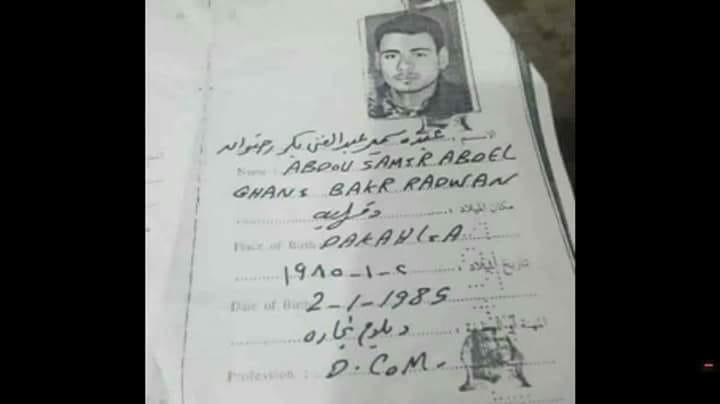 الاسم : عبده سمير عبد الغنى بكر رضوان
Name : ABDOU SAMIR ABDEL
GHANI BAKR RADWAN
مكان الميلاد : دقهليه
Place of Birth: DAKAHLIA
تاريخ الميلاد : ١٩٨٥-١-٢
Date of Birth: 2-1-1985
المهنة : دبلوم تجاره
Profession : D. COM.